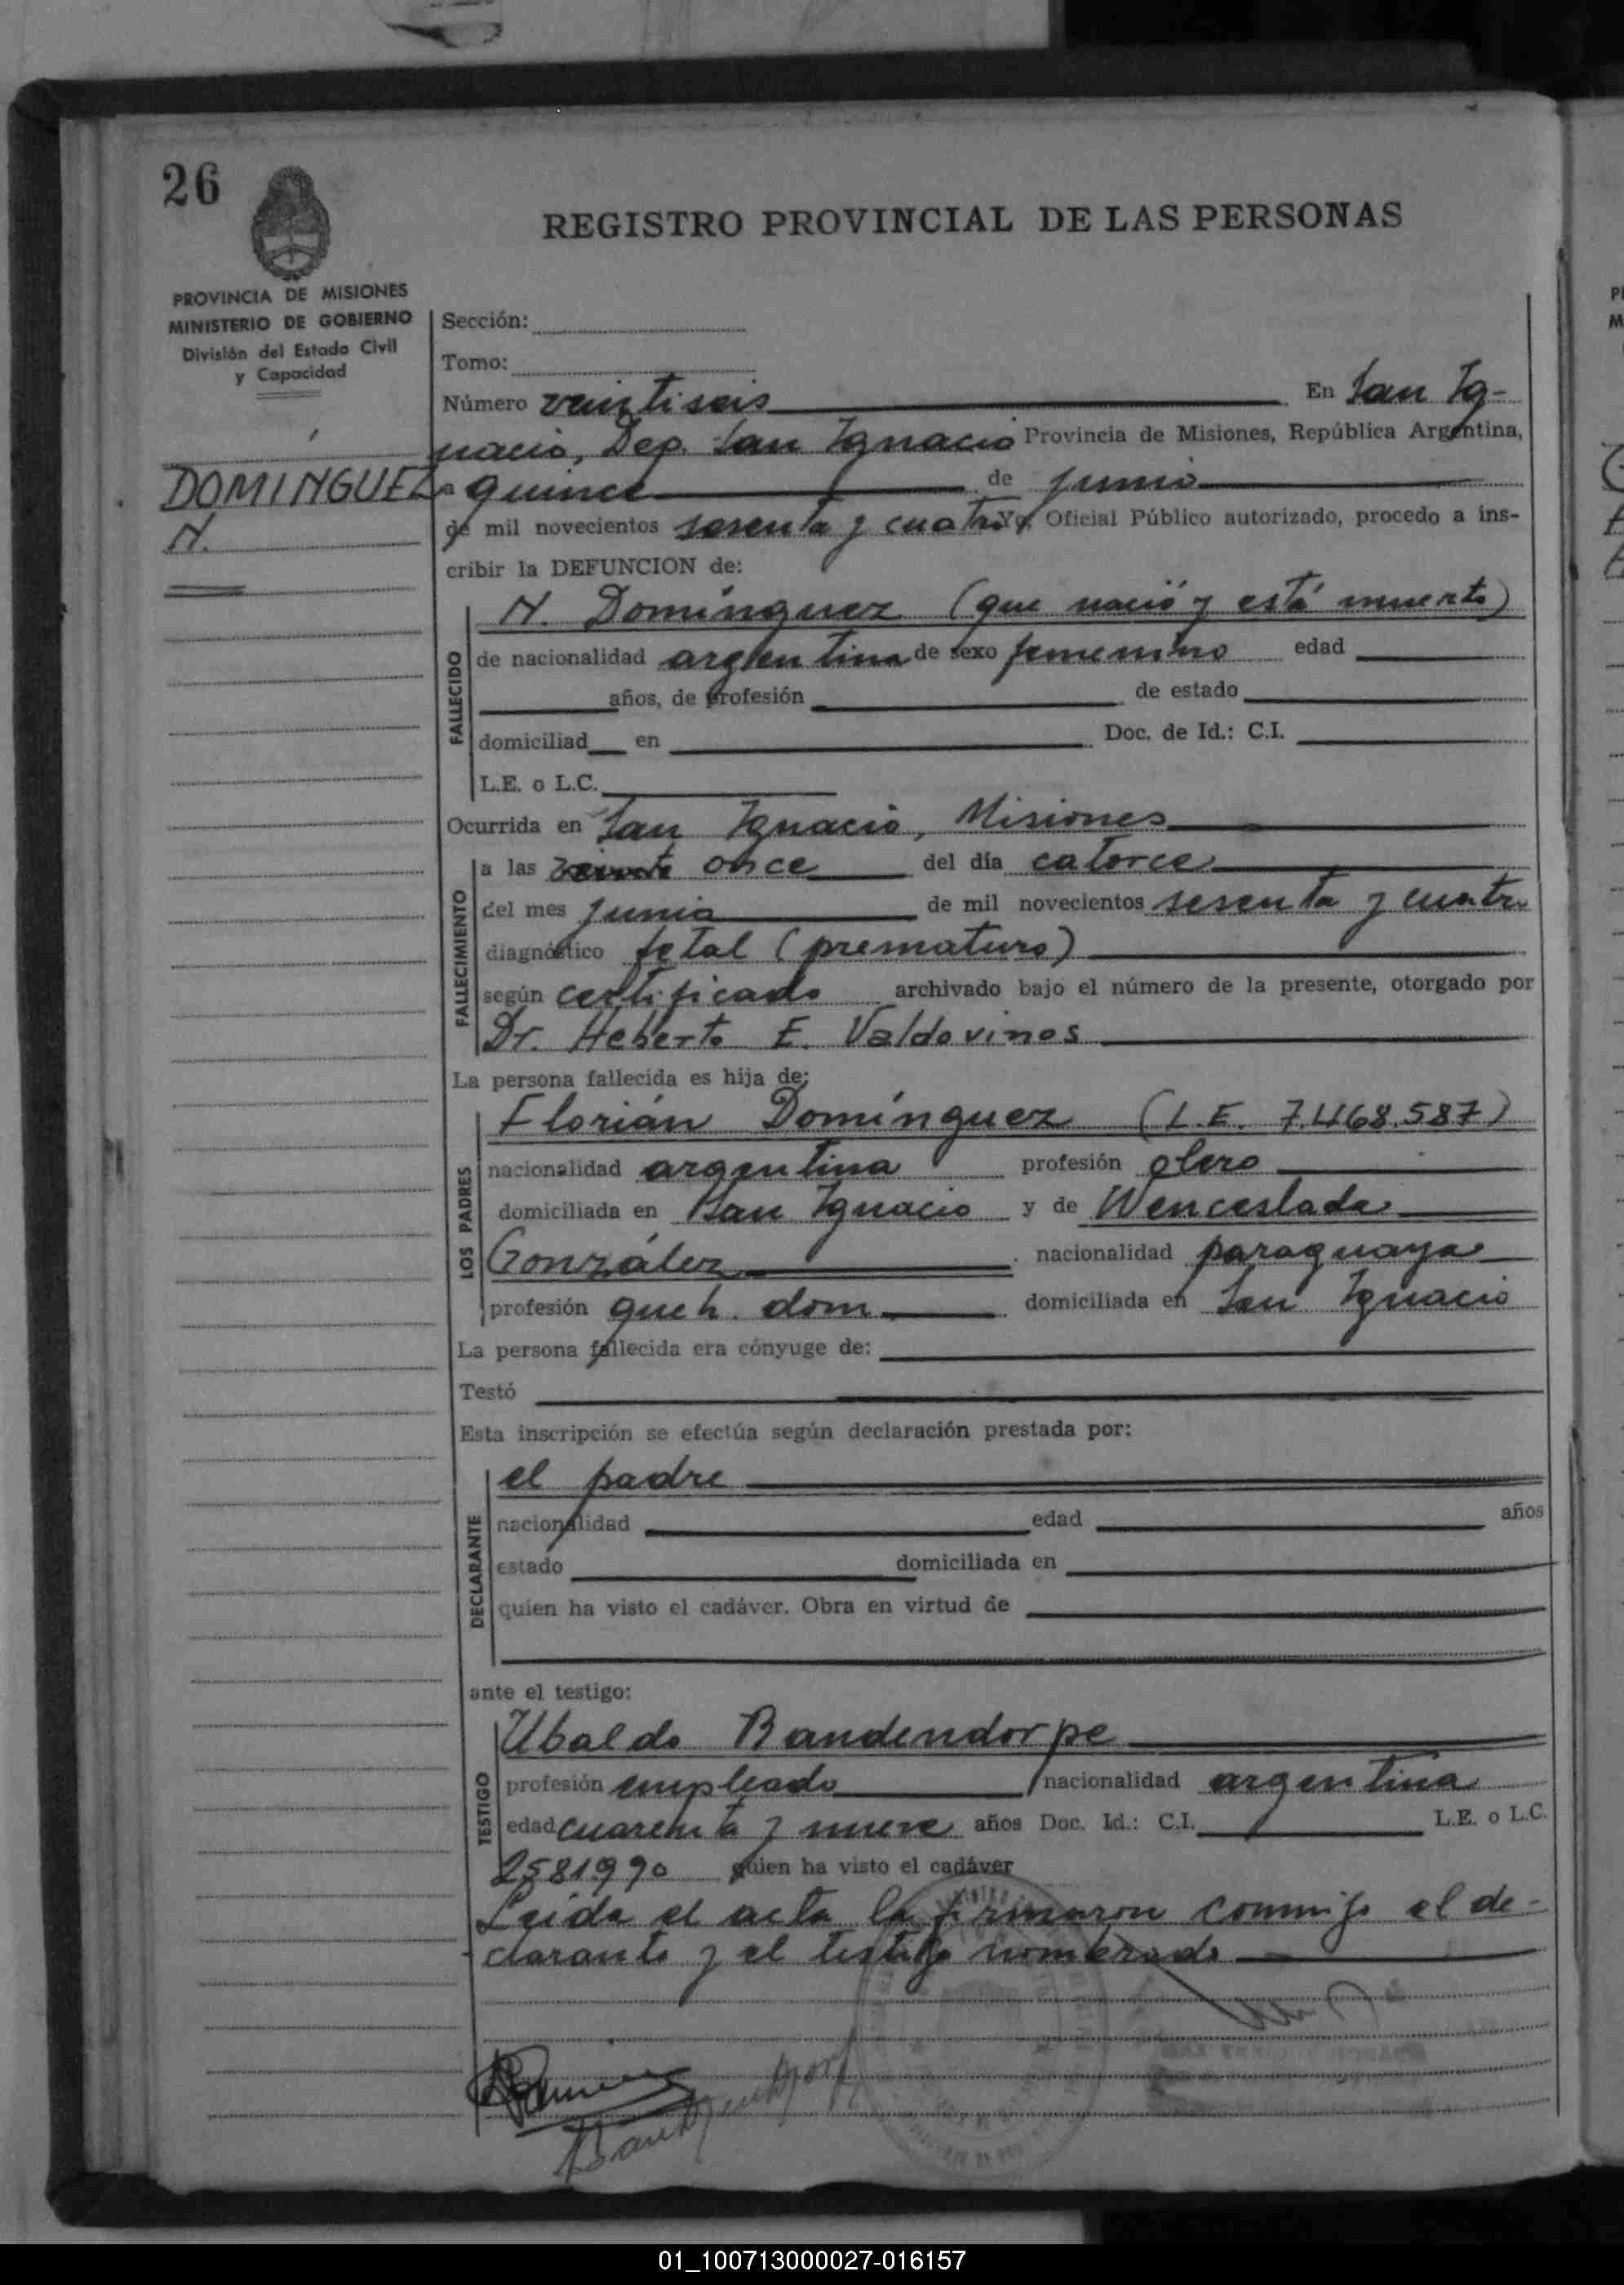 26
REGISTRO PROVINCIAL DE LAS PERSONAS
PROVINCIA DE MISIONES
MINISTERIO DE GOBIERNO
División del Estado Civil
y Capacidad
DOMINGUEZ
N.
Sección:
Tomo:
Número veintiseis En San Ig-
nacio, Dep. San Ignacio Provincia de Misiones, República Argentina,
a quince de junio
de mil novecientos sesenta y cuatro Yo, Oficial Público autorizado, procedo a ins-
cribir la DEFUNCION de:
N. Domínguez (que nació y está muerto)
FALLECIDO
de nacionalidad argentina de sexo femenino edad
años, de profesión de estado
domiciliad en Doc. de Id.: C.I.
L.E. o L.C.
Ocurrida en San Ignacio, Misiones
FALLECIMIENTO
a las once del día catorce
del mes junio de mil novecientos sesenta y cuatro
diagnóstico fetal (prematuro)
según certificado archivado bajo el número de la presente, otorgado por
Dr. Heberto E. Valdovinos
La persona fallecida es hija de:
LOS PADRES
Florián Domínguez (L.E. 7.468.587)
nacionalidad argentina profesión olero
domiciliada en San Ignacio y de Wenceslada
González nacionalidad paraguaya
profesión queh. dom. domiciliada en San Ignacio
La persona fallecida era cónyuge de:
Testó
Esta inscripción se efectúa según declaración prestada por:
DECLARANTE
el padre
nacionalidad edad años
estado domiciliada en
quien ha visto el cadáver. Obra en virtud de
ante el testigo:
TESTIGO
Ubaldo Bandendorpe
profesión empleado nacionalidad argentina
edad cuarenta y nueve años Doc. Id.: C.I. L.E. o L.C.
2581990 quien ha visto el cadáver
Leída el acta la firmaron conmigo el de-
clarante y el testigo nombrado
Bandendorp
01_100713000027-016157